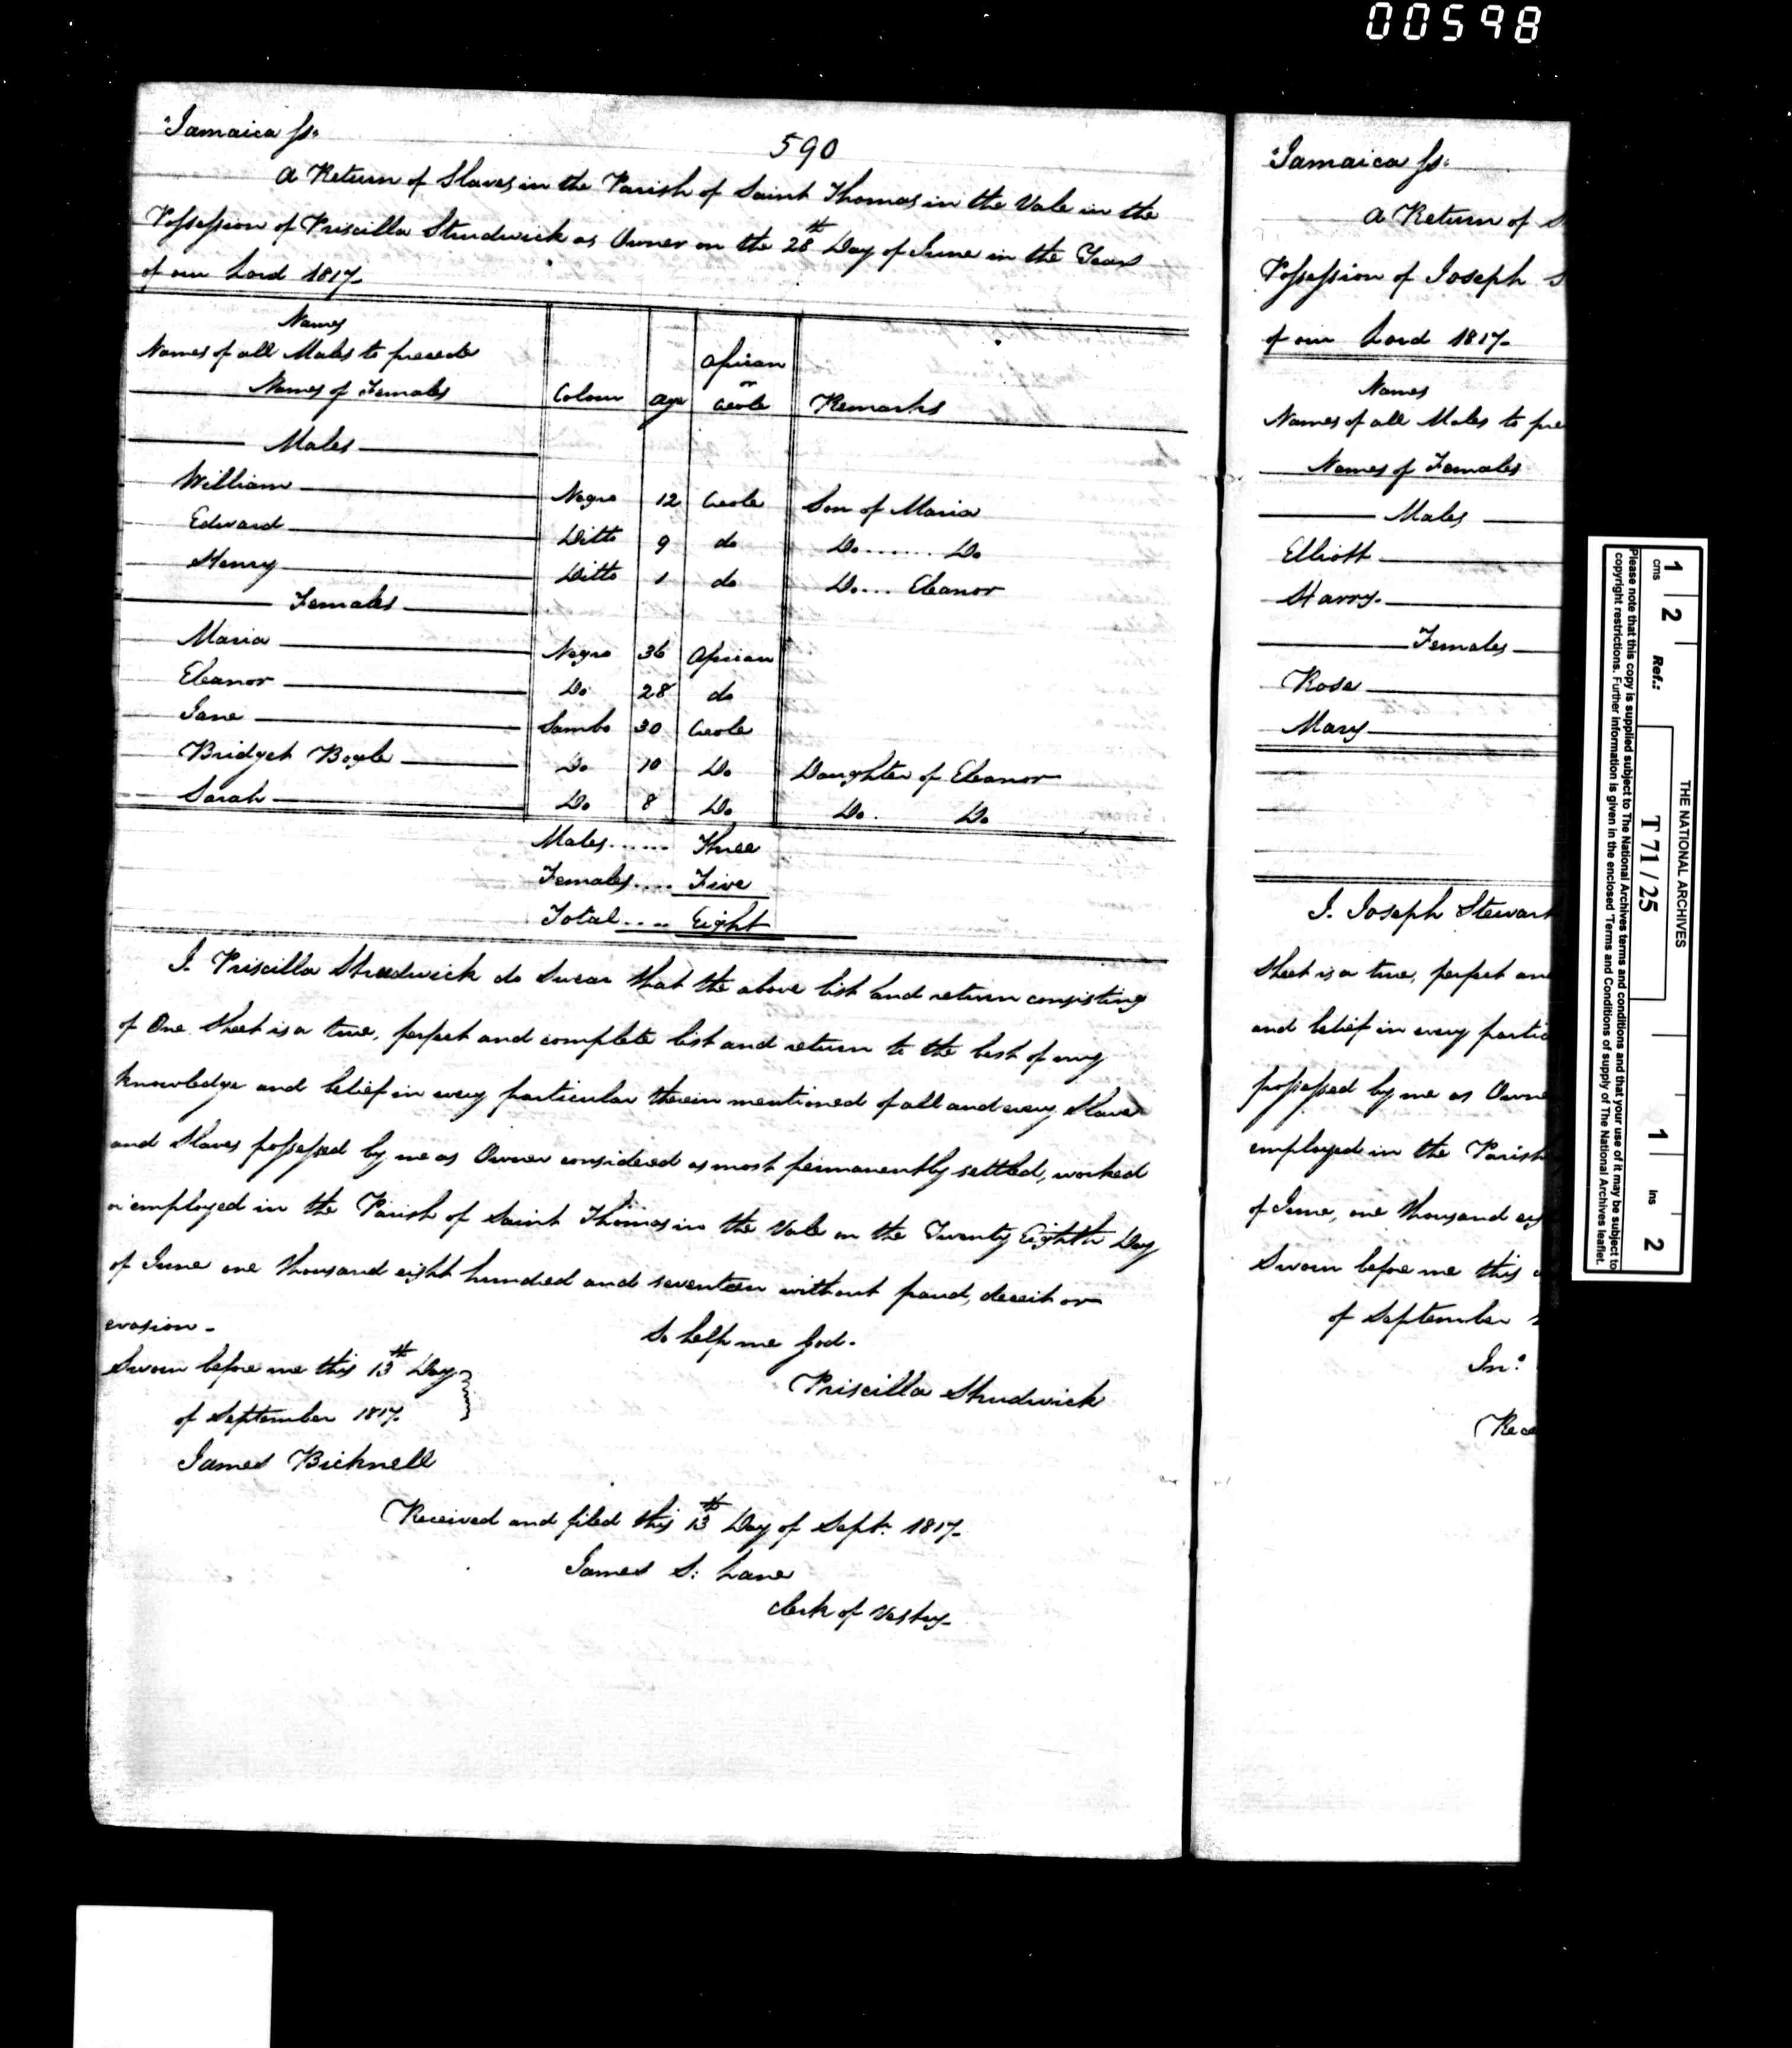 00598
Jamaica Ss.
590
A Return of Slaves in the Parish of Saint Thomas in the Vale in the
Possession of Priscilla Strudwick as Owner on the 28th Day of June in the Year
of our Lord 1817-
Names
Names of all Males to precede
Names of Females
Colour
Age
African
or
Creole
Remarks
Males
William Negro 12 Creole Son of Maria
Edward Ditto 9 do Do....... Do
Henry Ditto 1 do Do... Eleanor
Females
Maria Negro 36 African
Eleanor Do 28 do
Jane Sambo 30 Creole
Bridget Boyle Do 10 Do Daughter of Eleanor
Sarah Do 8 Do Do. Do
Males...... Three
Females.... Five
Total.... Eight
I. Priscilla Strudwick do swear that the above list and return consisting
of One Sheet is a true, perfect and complete list and return to the best of my
knowledge and belief in every particular therein mentioned of all and every Slave
and Slaves possessed by me as Owner considered as most permanently settled, worked
or employed in the Parish of Saint Thomas in the Vale on the Twenty Eighth Day
of June one thousand eight hundred and seventeen without fraud, deceit or
evasion-
So help me God.
Sworn before me this 13th Day
of September 1817.
Priscilla Strudwick
James Bicknell
Received and filed this 13th Day of Sept. 1817-
James S: Lane
Clerk of Vestry-
Jamaica Ss.
A Return of S
Possession of Joseph S
of our Lord 1817-
Names
Names of all Males to pre
Names of Females
Males
Elliott
Harry.
Females
Rose
Mary
I. Joseph Stewart
Sheet is a true, perfect an
and belief in every partic
possessed by me as Owne
employed in the Parish
of June, one thousand eig
Sworn before me this
of September
Jno.
Rece
THE NATIONAL ARCHIVES
1 2 Ref.: T 71/25 1 2
cms ins
Please note that this copy is supplied subject to The National Archives terms and conditions and that your use of it may be subject to
copyright restrictions. Further information is given in the enclosed 'Terms and Conditions of supply of The National Archives' leaflet.